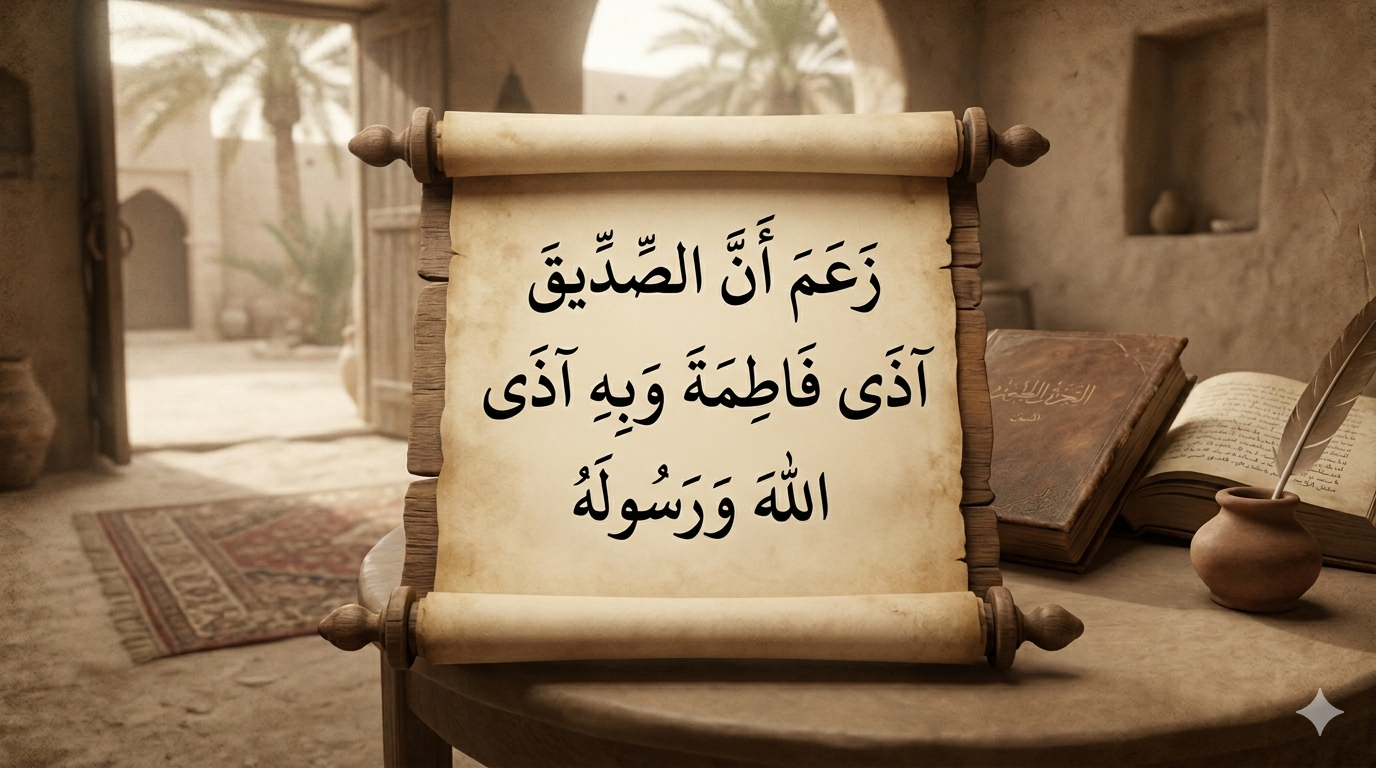 زَعَمَ أَنَّ الصِّدِّيقَ
آذَى فَاطِمَةَ وَبِهِ آذَى
اللهَ وَرَسُولَهُ